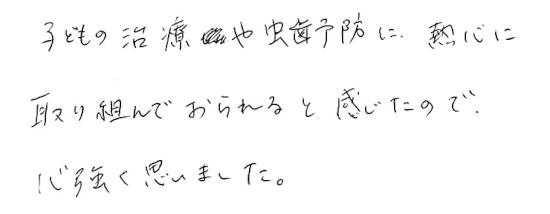 子どもの治療や虫歯予防に、熱心に
取り組んでおられると感じたので、
心強く思いました。